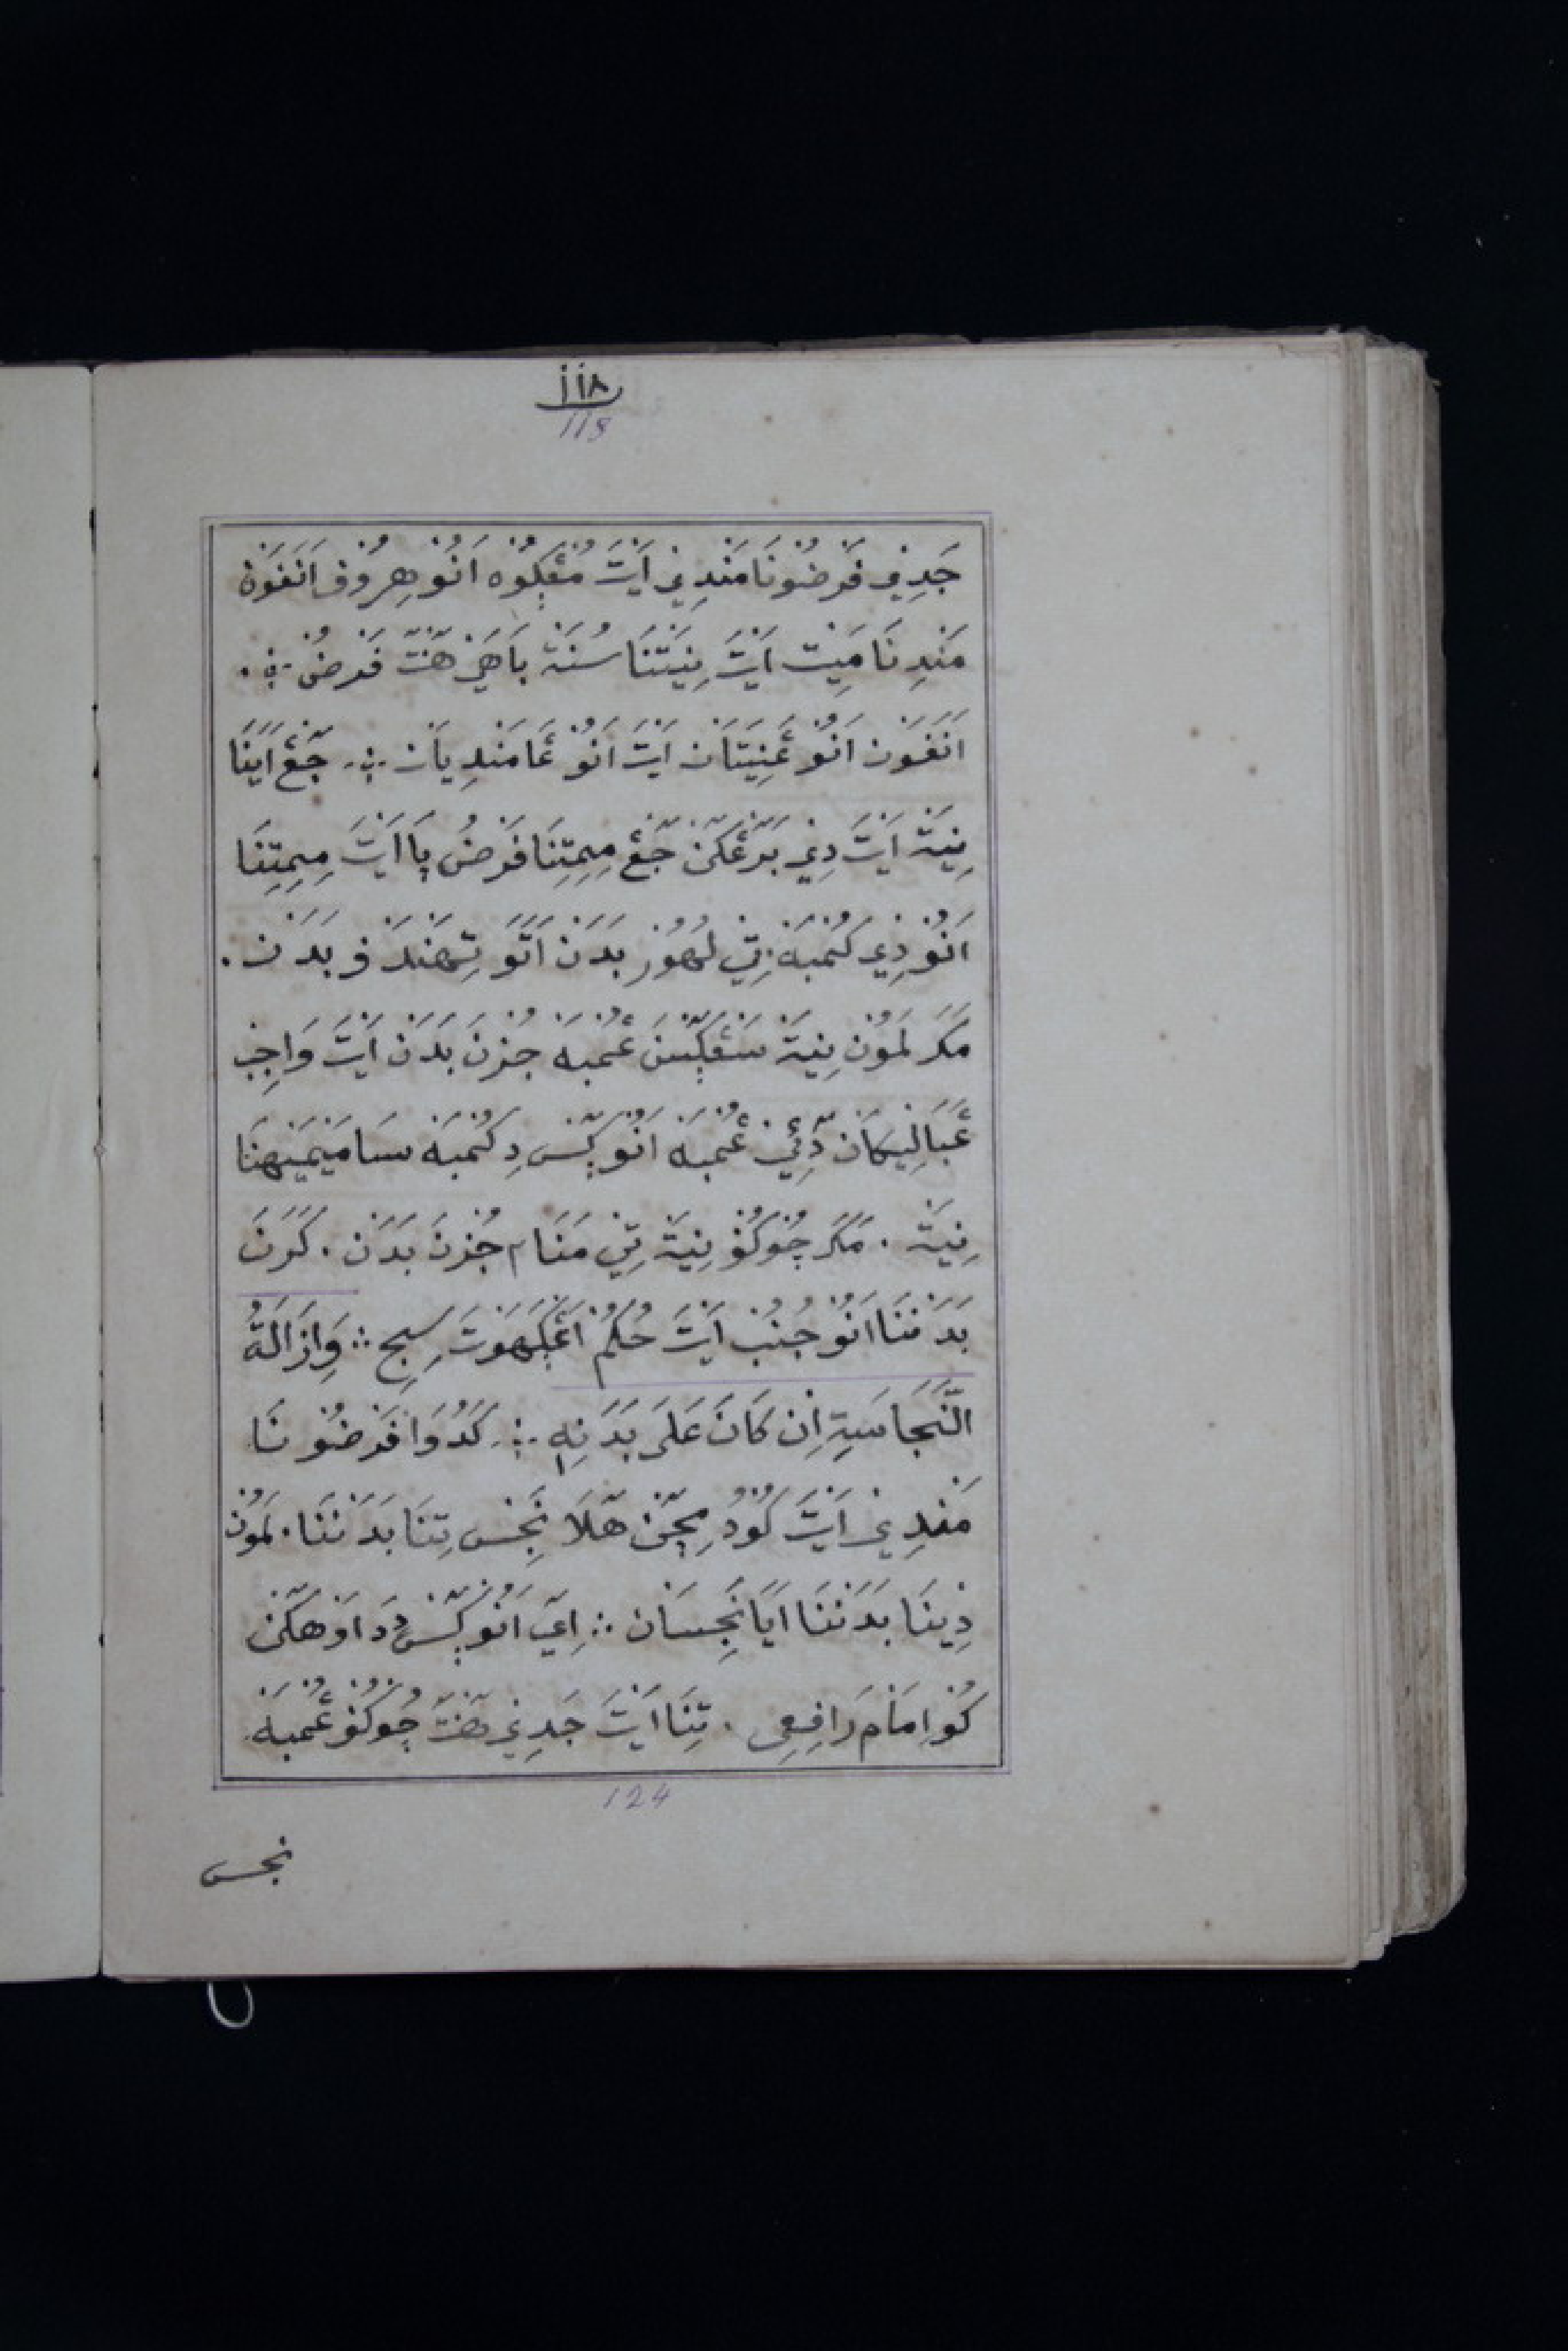 ١١٨
118
جَدِيْ فَرَضُونَا مَنْدِيْ اَيْتَ مُڠَݢُوْه اَنُوْ هِرُوْف اَنَفَوْن
مَنْدِنَا مَيِت اَيْتَ نِيَتْنَا سُنَة بَاهَيْ هَنْتَ فَرْضُ
اَنَفَوْن اَنُوْ غَنِيَتَان اَيْتَ اَنُوْ غَامَنْدِيَان جَڠَ اَيْنَا
نِيَة اَيْتَ دِيْ بَرَڠْكَن جَڠَ مِمِتِنَا فَرْضُ پَا اَيْتَ مِمِتِنَا
اَنُوْ دِيْ كُمْبَه تِيْ لُهُوْر بَدَن اَتَوَ تِهَنْدَف بَدَن .
مَكَر لَمُوْن نِيَة سَڠْݢَسْ عُمْبَه جُزْنَ بَدَن اَيْتَ وَاجِبْ
عَبَالِيْكَان دَيْئِ عُمْبَه اَنُوْ ݢَسْ دِ كُمْبَه سَامَيْمَيْهَنَا
نِيَة . مَكَر چُوْكُفْ نِيَة تِيْ مَنَام جُزْنَ بَدَن . كَرَنَ
بَدَنْنَا اَنُوْ جُنُبْ اَيْتَ حُكُمْ اَڠْݢَهَوْتَ سِجِ ؞ وَاِزَالَةُ
النَّجَاسَةِ اِنْ كَانَ عَلَى بَدَنِهِ ؞ كَدُوَا فَرَضُوْنَا
مَنْدِيْ اَيْتَ كُوْدُ مِچَنْ هَلَا نَجِسْ تِنَا بَدَنْنَا . لَمُوْن
دِيْنَا بَدَنْنَا اَيَا نَجِسَان ؞ اِيَ اَنُوْ ݢَسْ دِ دَاوُهَكَن
كُوْ اِمَامْ رَافِعِى . تِنَا اَيْتَ جَدِيْ هَنْتَ چُوْكُفْ عُمْبَه
124
نجس